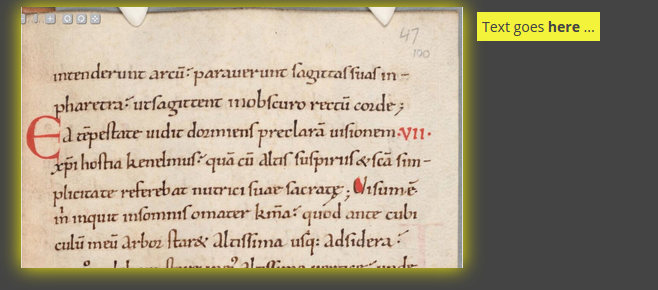 47
100
Text goes here ...
intenderunt arcū: parauerunt sagittas suas in -
pharetra: ut sagittent in obscuro rectū corde;
Ea tēpestate uidit dormiens preclarā uisionem .VII.
xp̄i hostia kenelmus: quā cū altis suspiriis & scā sim-
plicitate referebat nutrici suae sacratę; Uisum ē
m̄ inquit in somnis o mater km̄a: quod ante cubi
culū meū arbor star& altissima usq: ad sidera: